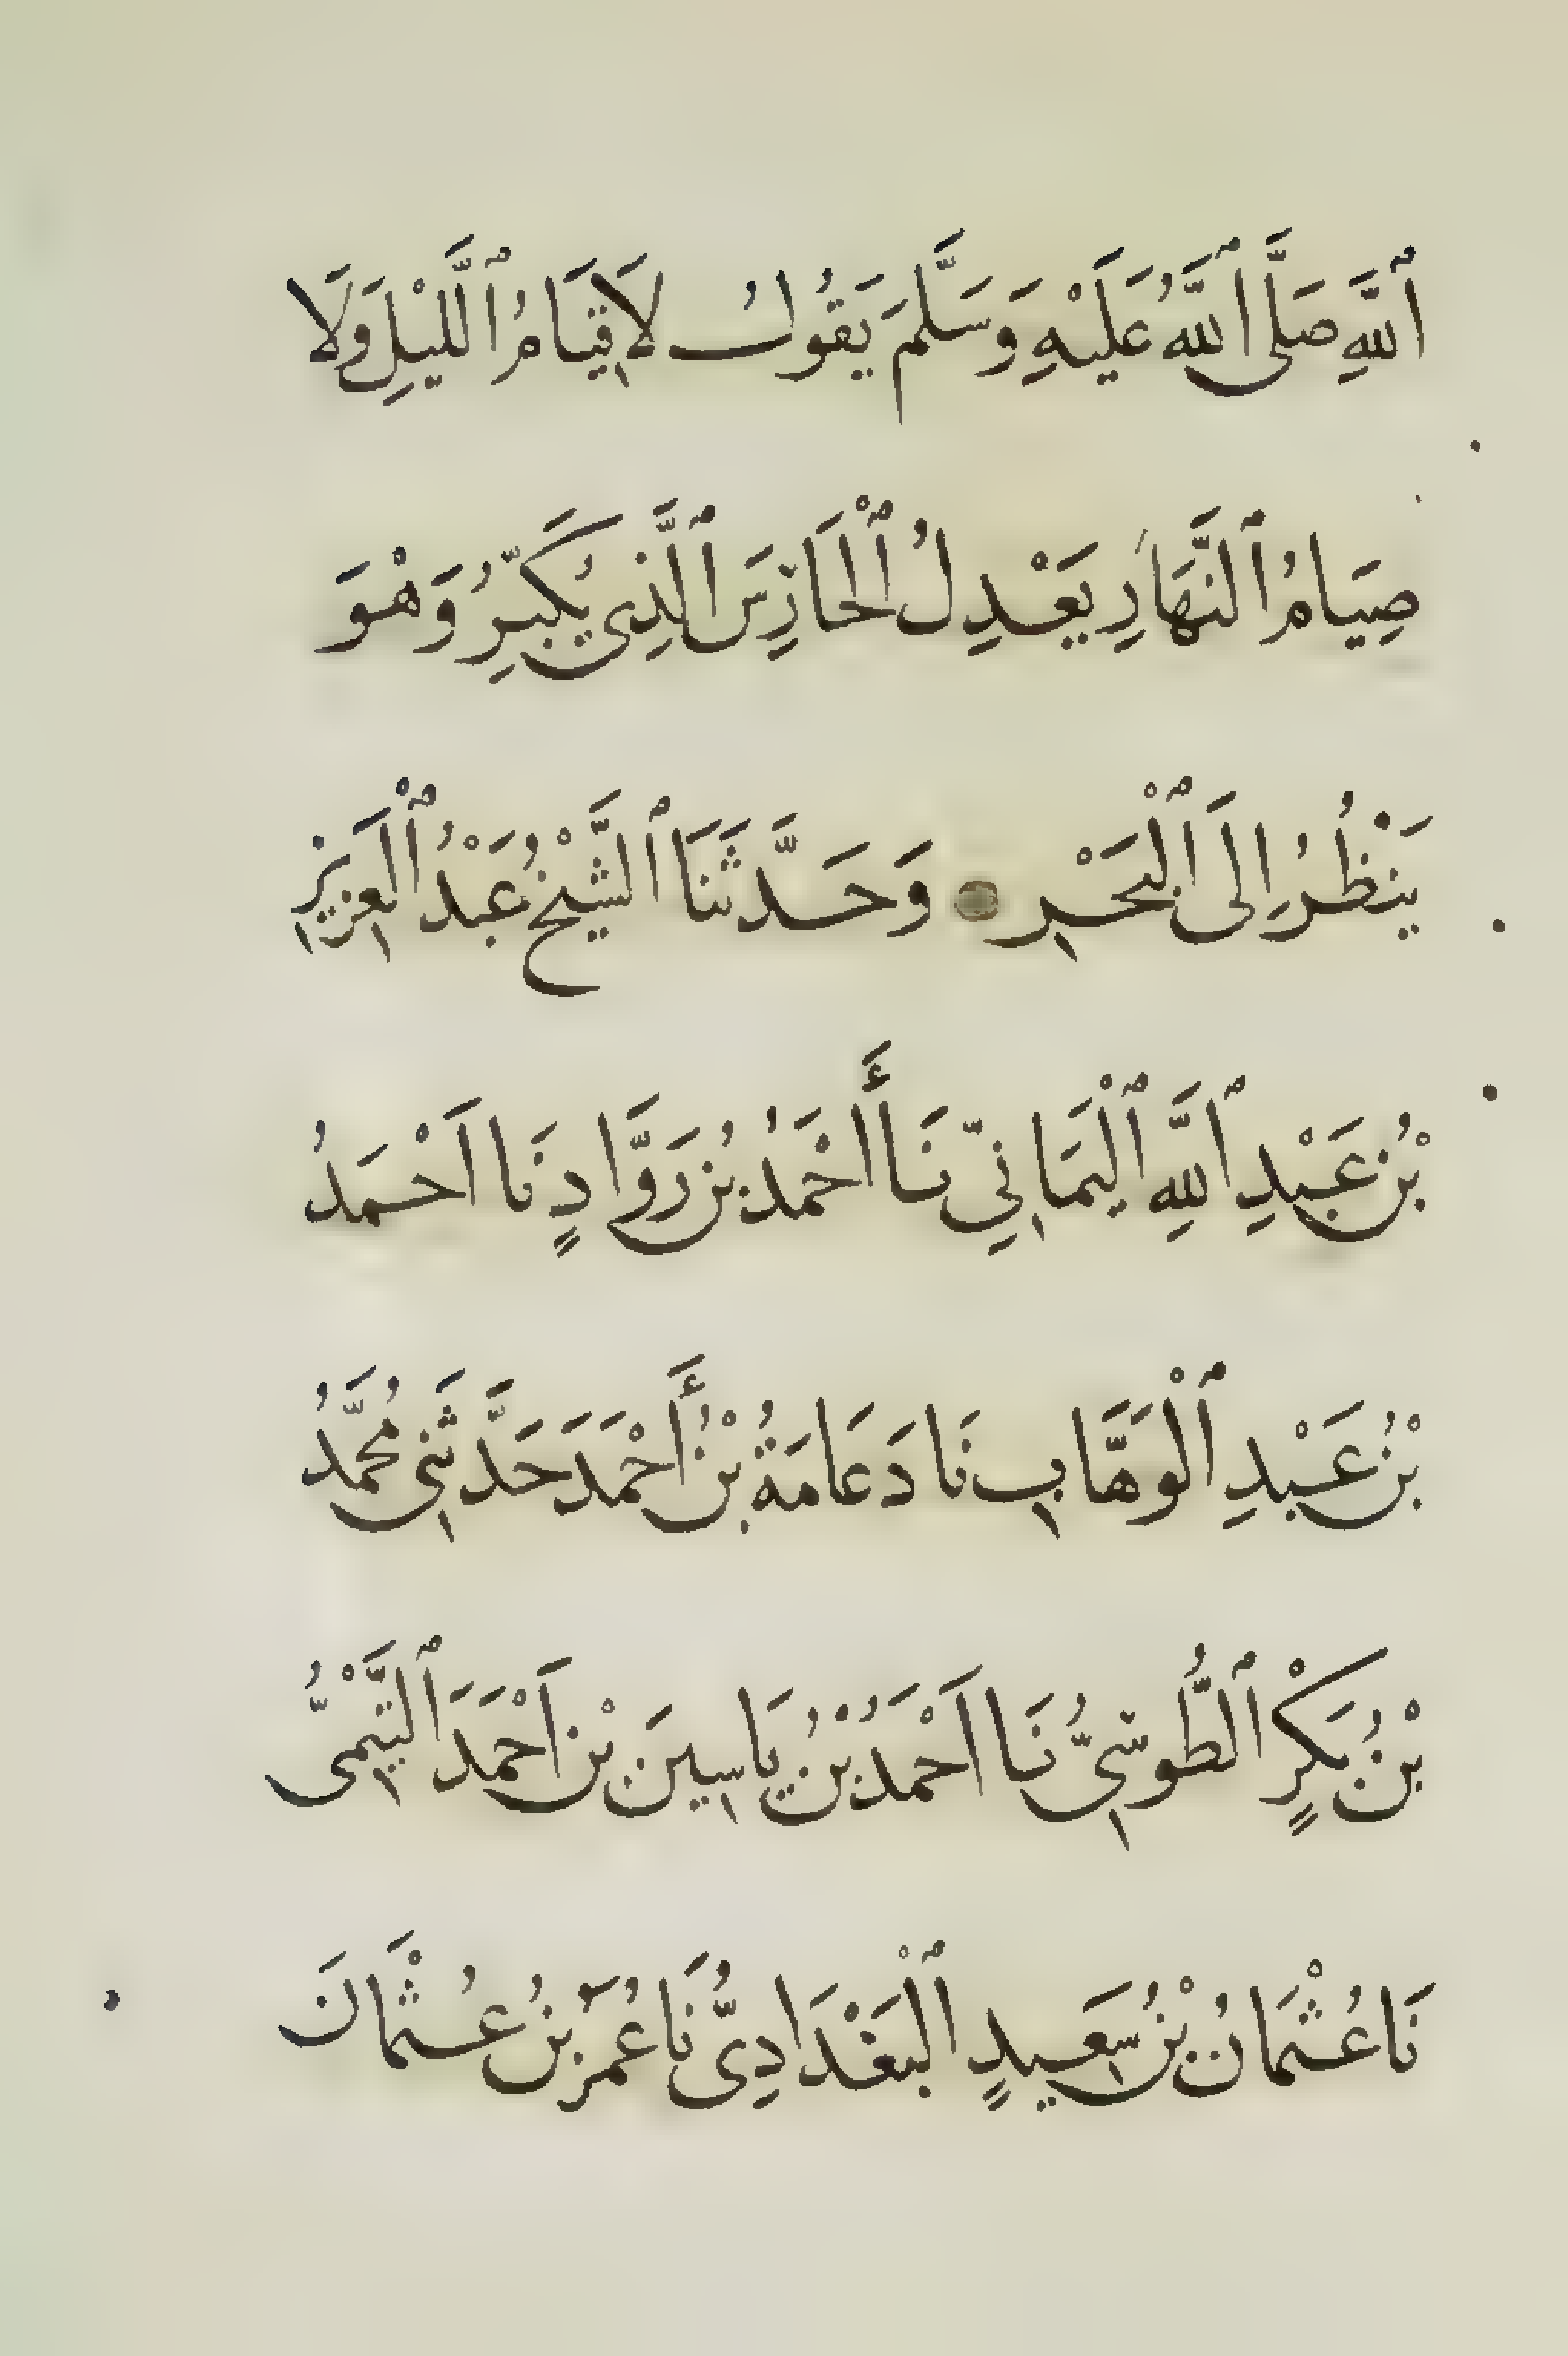 ٱللَّهِ صَلَّى ٱللَّهُ عَلَيْهِ وَسَلَّمَ يَقُولُ لَا قِيَامُ ٱللَّيْلِ وَلَا
صِيَامُ ٱلنَّهَارِ يَعْدِلُ ٱلْحَارِسَ ٱلَّذِي يُكَبِّرُ وَهْوَ
يَنْظُرُ إِلَى ٱلْبَحْرِ وَحَدَّثَنَا ٱلشَّيْخُ عَبْدُ ٱلْعَزِيزِ
بْنُ عَبْدِ ٱللَّهِ ٱلْيَمَانِيِّ نَا أَحْمَدُ بْنُ رَوَّادٍ نَا أَحْمَدُ
بْنُ عَبْدِ ٱلْوَهَّابِ نَا دَعَامَةُ بْنُ أَحْمَدَ حَدَّثَنِي مُحَمَّدُ
بْنُ بَكْرٍ ٱلطُّوسِيُّ نَا أَحْمَدُ بْنُ يَاسِينَ بْنِ أَحْمَدَ ٱلتَّيْمِيُّ
نَا عُثْمَانُ بْنُ سَعِيدٍ ٱلْبَغْدَادِيُّ نَا عُمَرُ بْنُ عُثْمَانَ